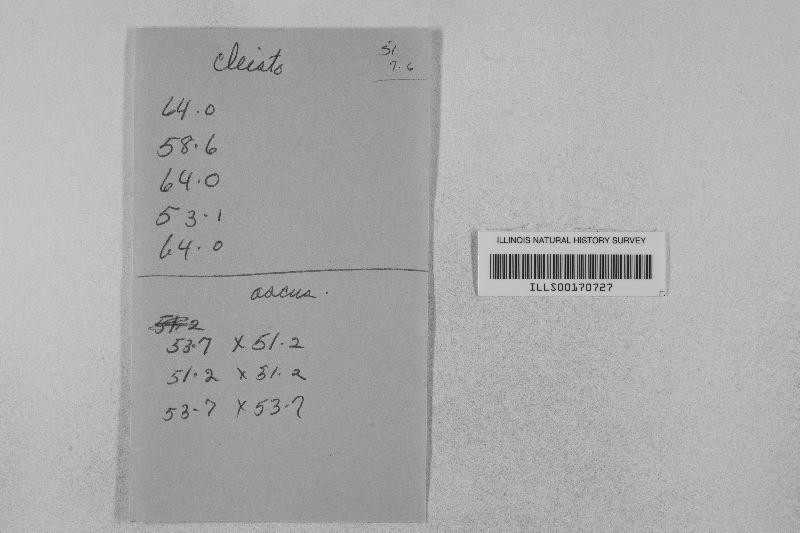 cleisto
51
7.6
64.0
58.6
64.0
53.1
64.0
ascus.
53.7 x 51.2
51.2 x 51.2
53.7 x 53.7
ILLINOIS NATURAL HISTORY SURVEY
ILLS00170727